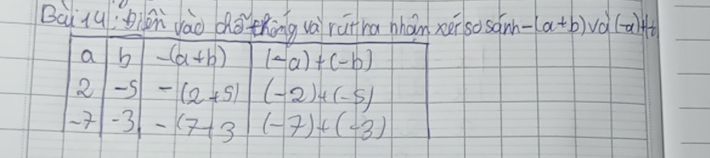 Bài 14: Điền vào chỗ trống và rút ra nhận xét so sánh -(a+b) và (-a)+(-b)
a b -(a+b) (-a)+(-b)
2 -5 -(2+5) (-2)+(-5)
-7 -3 -(7+3 (-7)+(-3)